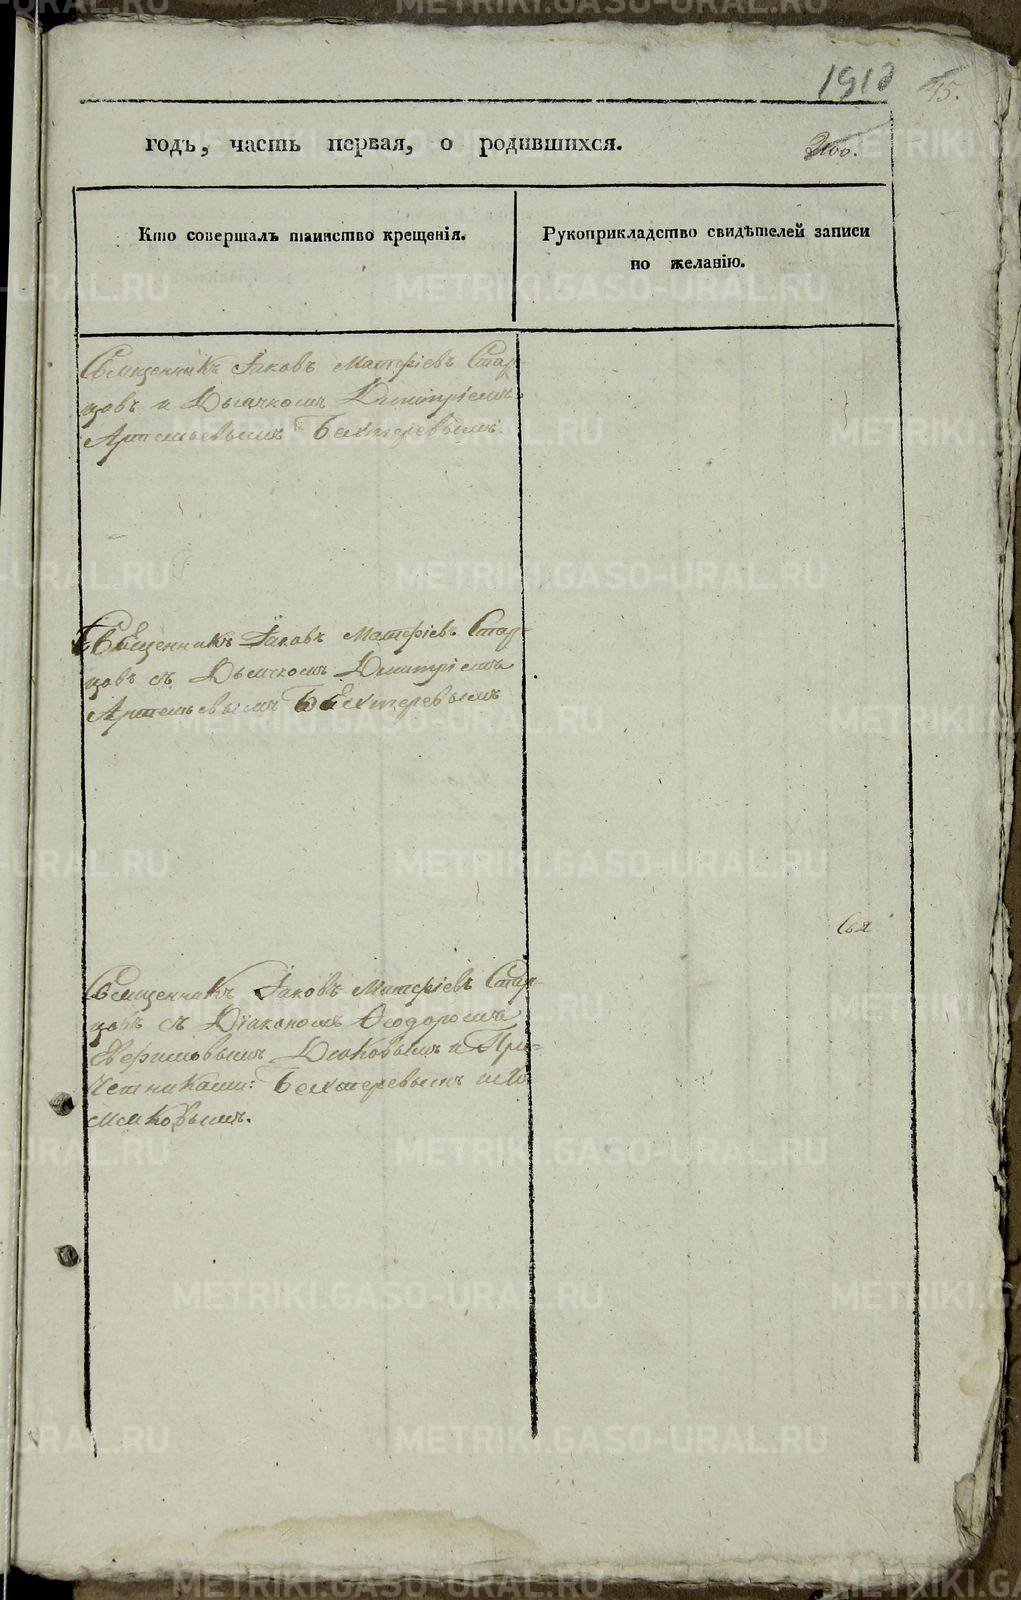 1918
15.
годъ, часть первая, о родившихся.
200.
Кто совершалъ таинство крещенія.
Рукоприкладство свидѣтелей записи
по желанію.
Священникъ Іаковъ Матѳіевъ Стар-
цовъ и Дьячкомъ Димитріемъ
Артемьевымъ Бехтеревымъ.
Священникъ Іаковъ Матѳіевъ Стар-
цовъ съ Дьячкомъ Димитріемъ
Артемьевымъ Бехтеревымъ
Священникъ Іаковъ Матѳіевъ Стар-
цовъ съ Діакономъ Ѳеодоромъ
и При-
четниками: Бехтеревымъ и
METRIKI.GASO-URAL.RU